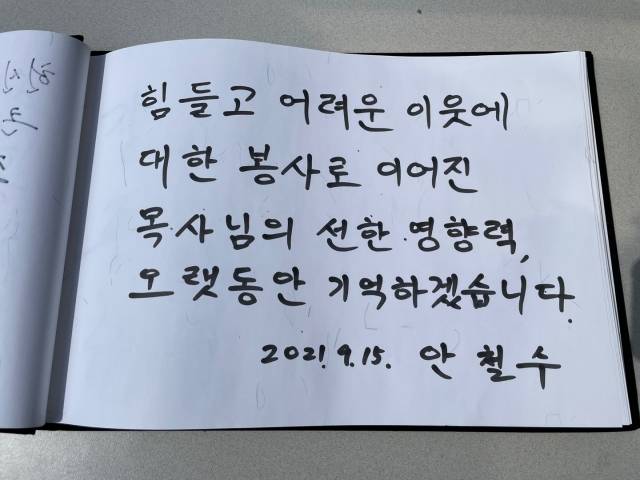 힘들고 어려운 이웃에
대한 봉사로 이어진
목사님의 선한 영향력,
오랫동안 기억하겠습니다.
2021. 9. 15. 안철수